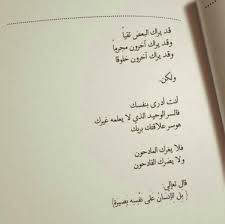 قد يراك البعض تقياً
وقد يراك آخرون مجرماً
وقد يراك آخرون خلوقا
ولكن.
أنت أدرى بنفسك
فالسر الوحيد الذي لا يعلمه غيرك
هو سر علاقتك بربك
فلا يغرك المادحون
ولا يضرك القادحون
قال تعالى:
{ بل الإنسان على نفسه بصيرة}